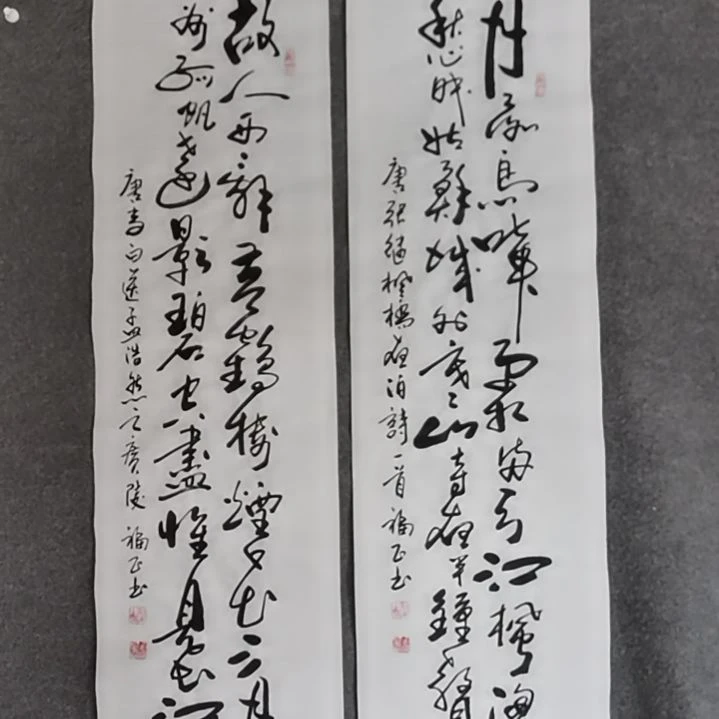 月落烏啼霜滿天江楓漁
愁眠姑蘇城外寒山寺夜半鐘聲
唐張繼楓橋夜泊詩一首 福正书
故人西辭黃鶴樓煙花三月
州孤帆遠影碧空盡惟見長江
唐李白送孟浩然之廣陵 福正书